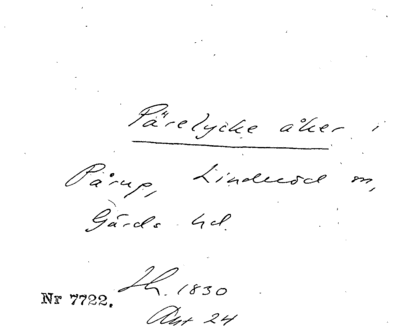 Pärelycke åker i
Pårup, Linderöd sn,
Gärds hd.
Nr 7722. Lh. 1830
Akt 24